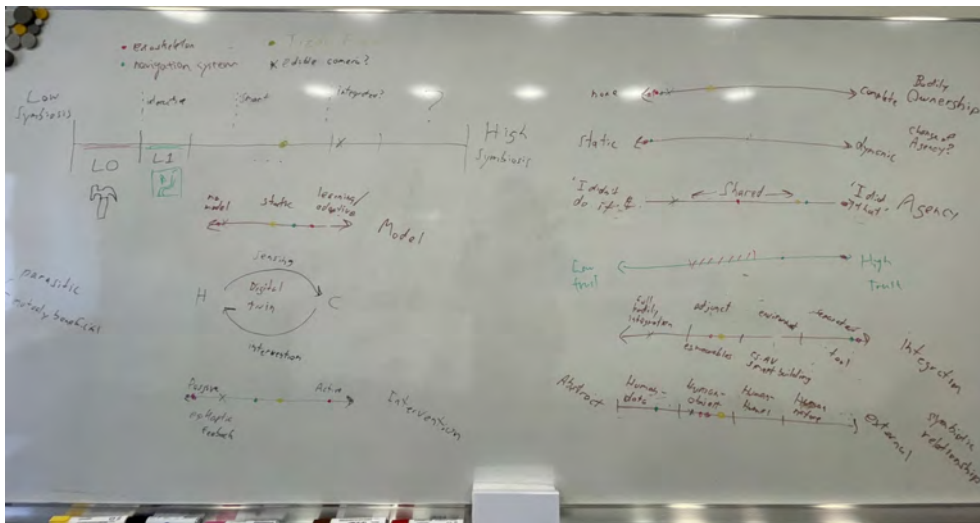 exoskeleton
navigation system
x edible camera?
Low Symbiosis
interactive
smart
integrated?
?
High Symbiosis
L0
L1
no model
static
learning/
adaptive
Model
Sensing
H
Digital
twin
C
intervention
parasitic
mutually beneficial
Passive
Active
Intervention
eg Haptic
Feedback
none
complete
Bodily
Ownership
static
dynamic
change of
Agency?
'I didn't
do it'
Shared
'I did
that'
Agency
Low
trust
High
Trust
full
bodily
integration
adjunct
environment
separated
eg wearables
eg. AV
smart building
tool
Integration
Abstract
Human-
data
Human-
object
Human-
human
Human
nature
external
symbiotic
relationship